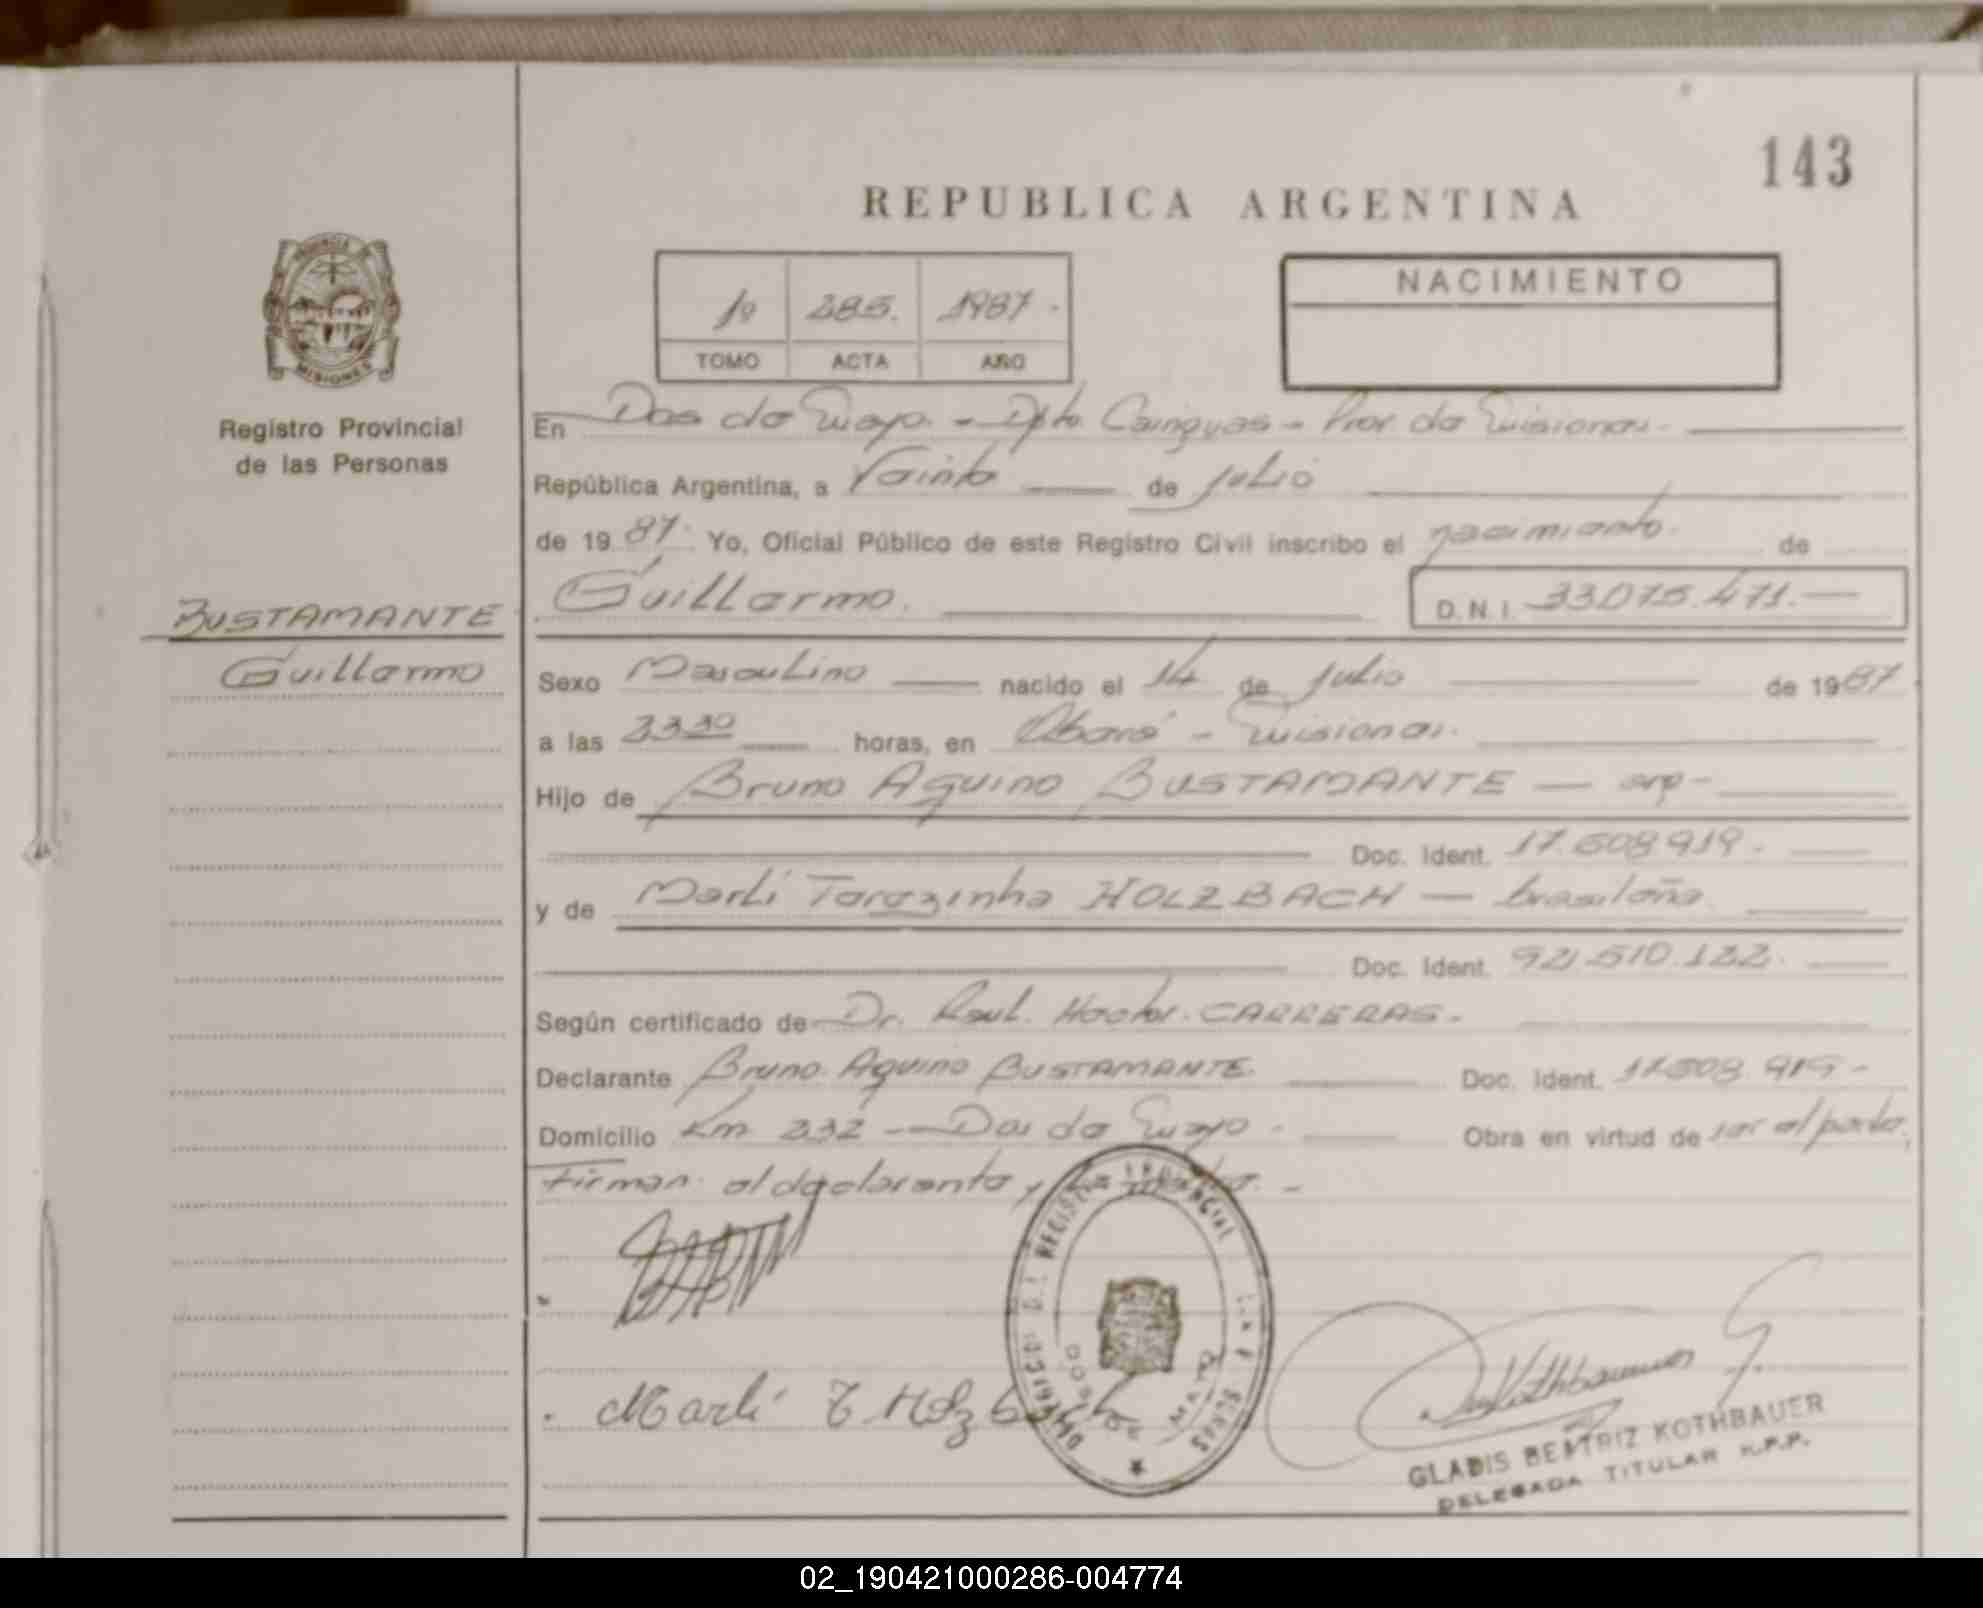 143
REPUBLICA ARGENTINA
1º 285. 1987.
TOMO ACTA AÑO
NACIMIENTO
PROVINCIA DE
MISIONES
Registro Provincial
de las Personas
BUSTAMANTE
Guillermo
En Dos de Mayo. - Dpto. Cainguas - Prov. de Misiones.
República Argentina, a Veinte de julio
de 19 87. Yo, Oficial Público de este Registro Civil inscribo el nacimiento. de
Guillermo. D.N.I. 33.075.471.
Sexo Masculino nacido el 14 de julio de 1987
a las 23 30 horas, en Oberá - Misiones.
Hijo de Bruno Aquino BUSTAMANTE - arg -
Doc. Ident. 17.508.919.
y de Marli Terezinha HOLZBACH - brasileña.
Doc. Ident. 92.510.122.
Según certificado de Dr. Raul. Hector. CARRERAS.
Declarante Bruno Aquino BUSTAMANTE. Doc. Ident. 17.508.919-
Domicilio Km 232 - Dos de Mayo. Obra en virtud de ser el padre,
firman. el declarante, y la
Marli T Holzbach
REGISTRO PROVINCIAL DE LAS PERSONAS
DOS DE MAYO
GLADIS BEATRIZ KOTHBAUER
DELEGADA TITULAR R.P.P.
02_190421000286-004774